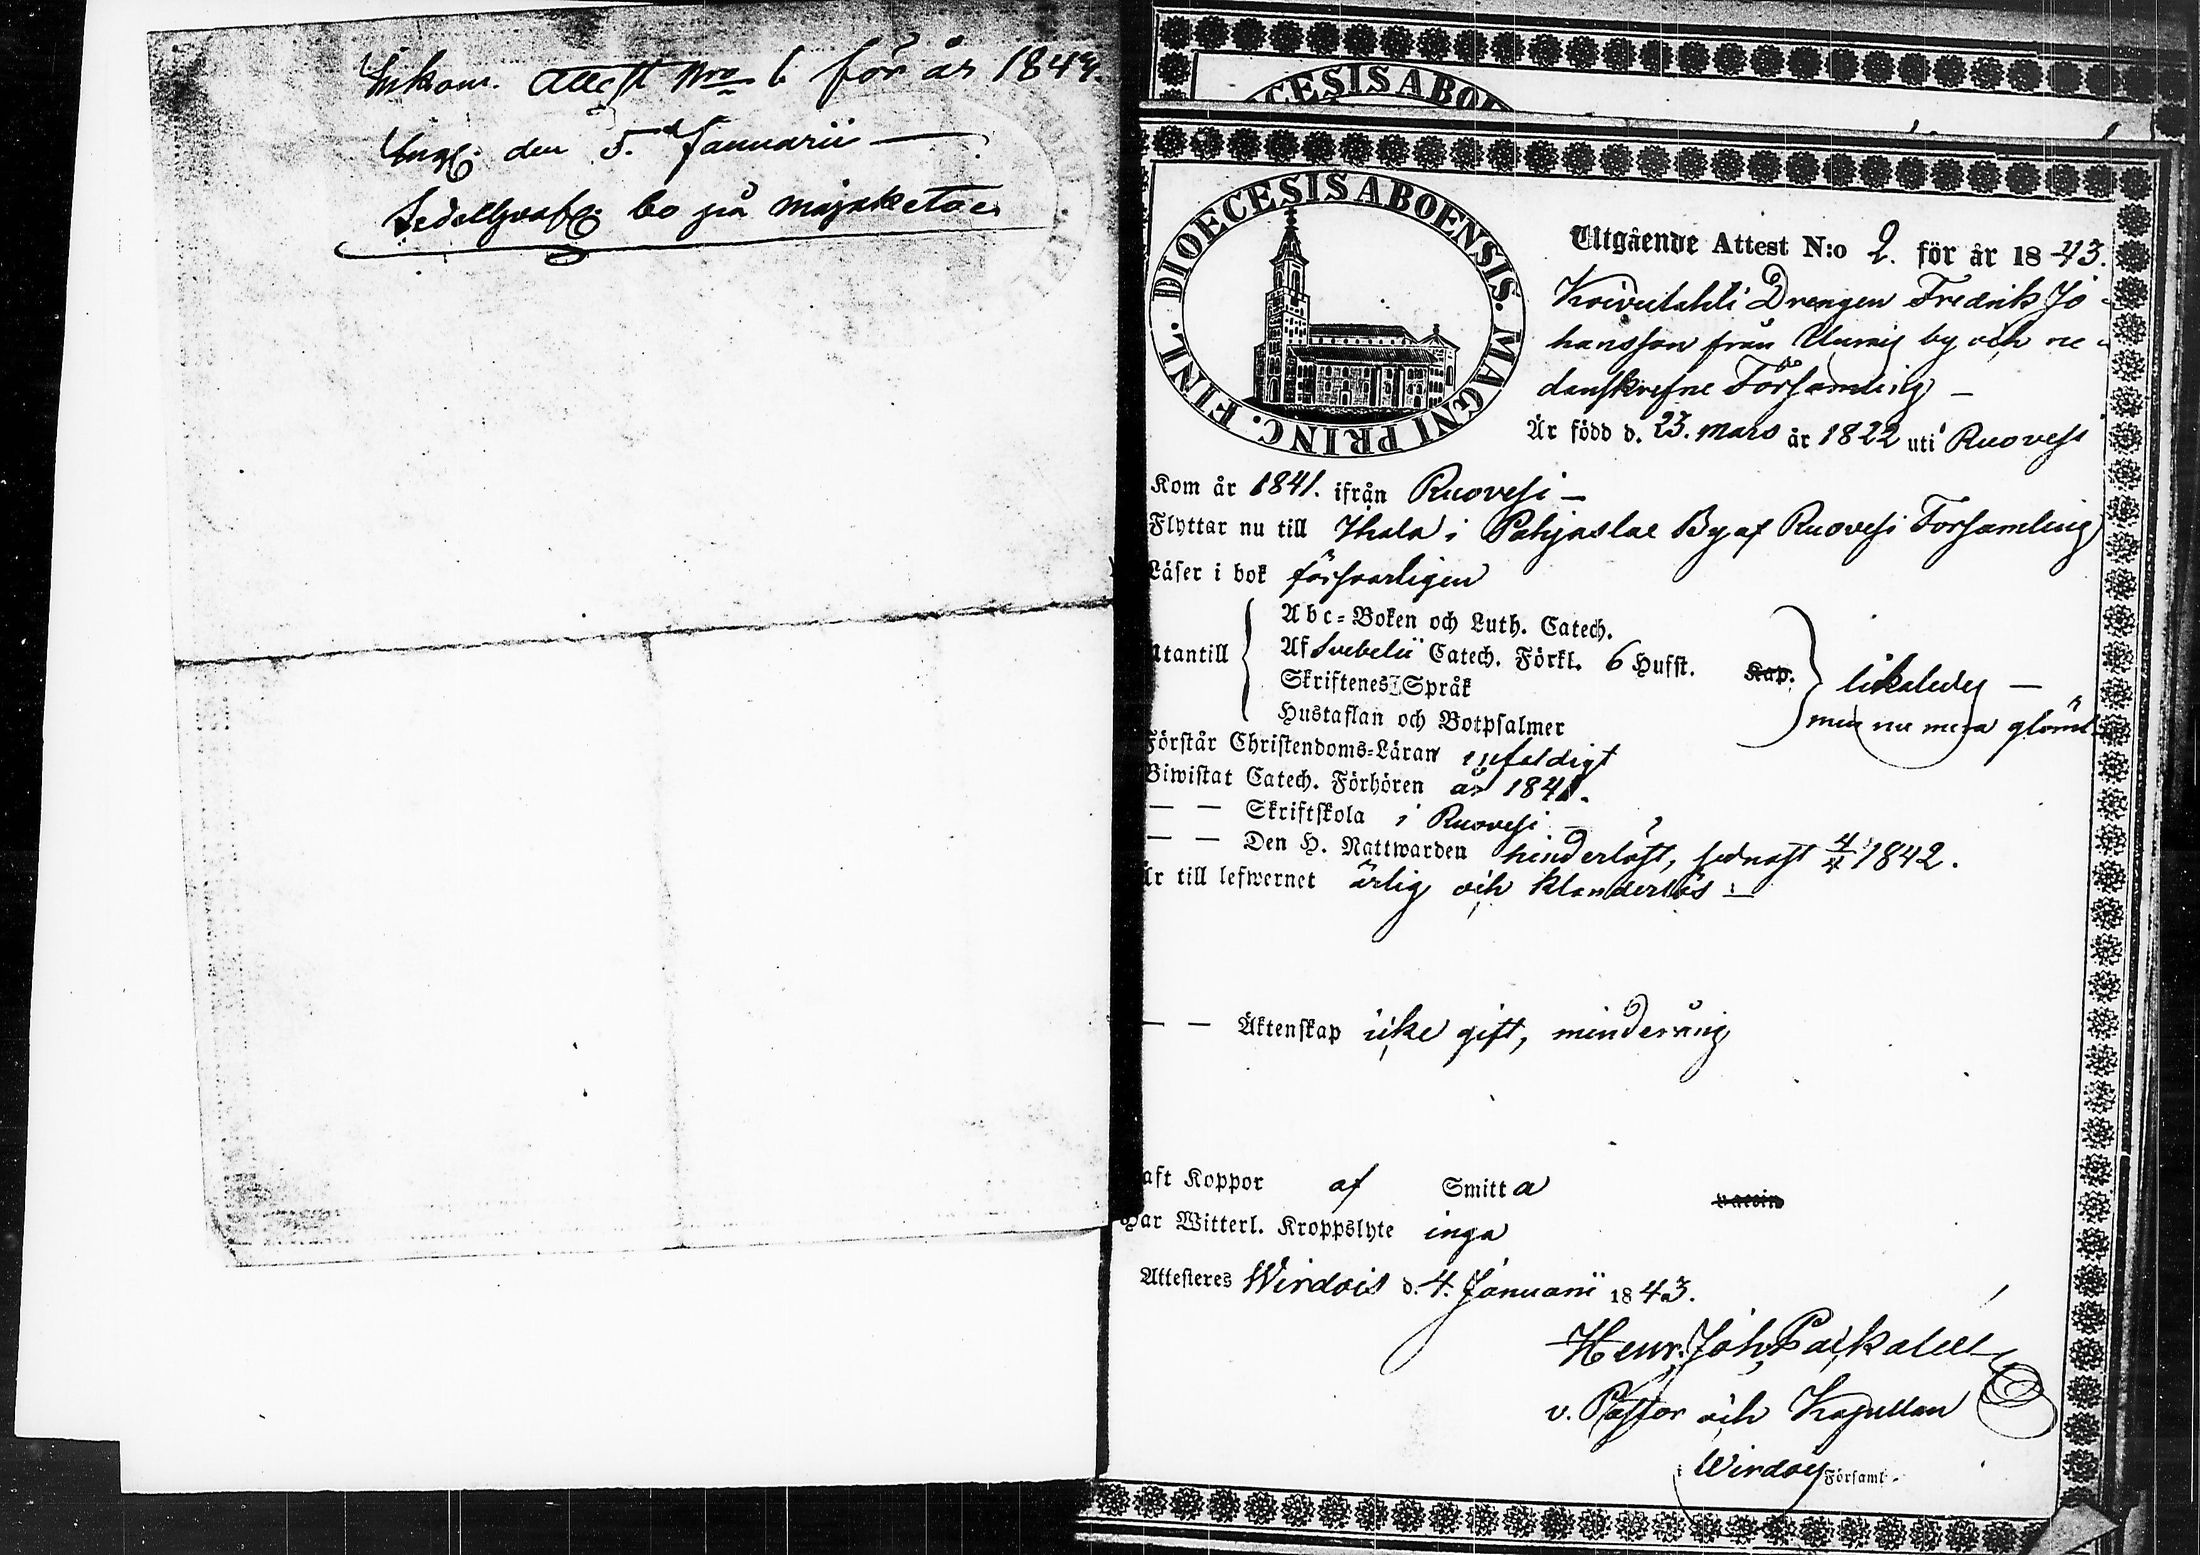 Inkom. Attest Nro 6 för år 1843.
den 5. Januarii —
bo på
DIOECESIS ABO
DIOECESIS ABOENSIS. MAGNI PRINC. FINL.
Utgående Attest N:o 2. för år 1843.
Drengen Fredrik Jo-
hansson från by och ne-
danskrefne Församling —
Är född d. 23. Mars år 1822 uti Ruovesi
Kom år 1841. ifrån Ruovesi —
Flyttar nu till Ihala i Pohjaslax By af Ruovesi Församling
Läser i bok försvarligen
Utantill
Abc-Boken och Luth. Catech.
Af Svebelii Catech. Förkl. 6 Hufst. Kap.
Skriftenes Språk
Hustaflan och Botpsalmer
likaledes —
men nu mera glömt
Förstår Christendoms-Läran enfaldigt
Biwistat Catech. Förhören år 1841.
— — Skriftskola i Ruovesi —
— — Den H. Nattwarden hinderlöst, sednast 4/4 1842.
Är till lefwernet ärlig och klanderlös —
— — Äktenskap icke gift, minderårig
aft Koppor af Smitta vaccin
Har Witterl. Kroppslyte inga
Attesteras Wirdois d. 4. Januarii 1843.
Henr. Joh.
v. Pastor och Kapellan
i Wirdois Församl.